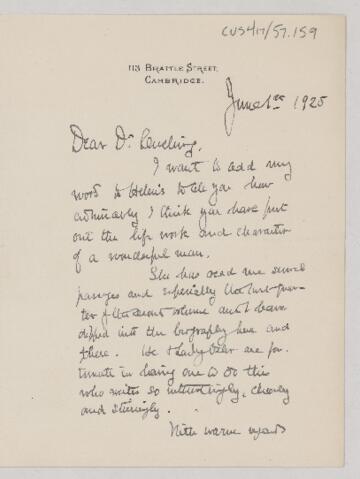 CUS4/17/57.159
113 BRATTLE STREET,
CAMBRIDGE.
June 1st 1925
Dear Dr.
I want to add my
word to Helen's to tell you how
admirably I think you have put
out the life work and character
of a wonderful man.
She has read me several
passages and especially the last chap-
ter of the second volume and I have
dipped into the biography here and
there. We & Lady Osler are for
tunate in having one to do this
who writes so interestingly, clearly
and
With warm regards